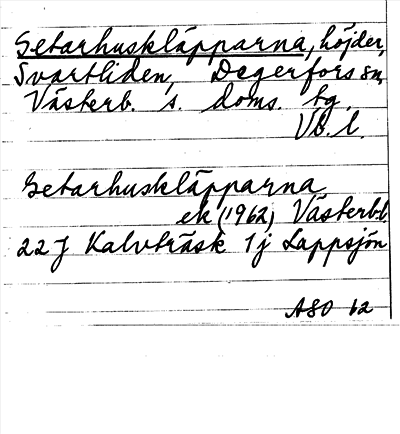 Getarhuskläpparna, höjder,
Svartliden, Degerfors sn,
Västerb. s. doms. tg,
Vb. l.
Getarhuskläpparna
ek (1962) Västerb.l.
22 J Kalvträsk 1j Lappsjön
ASO 62